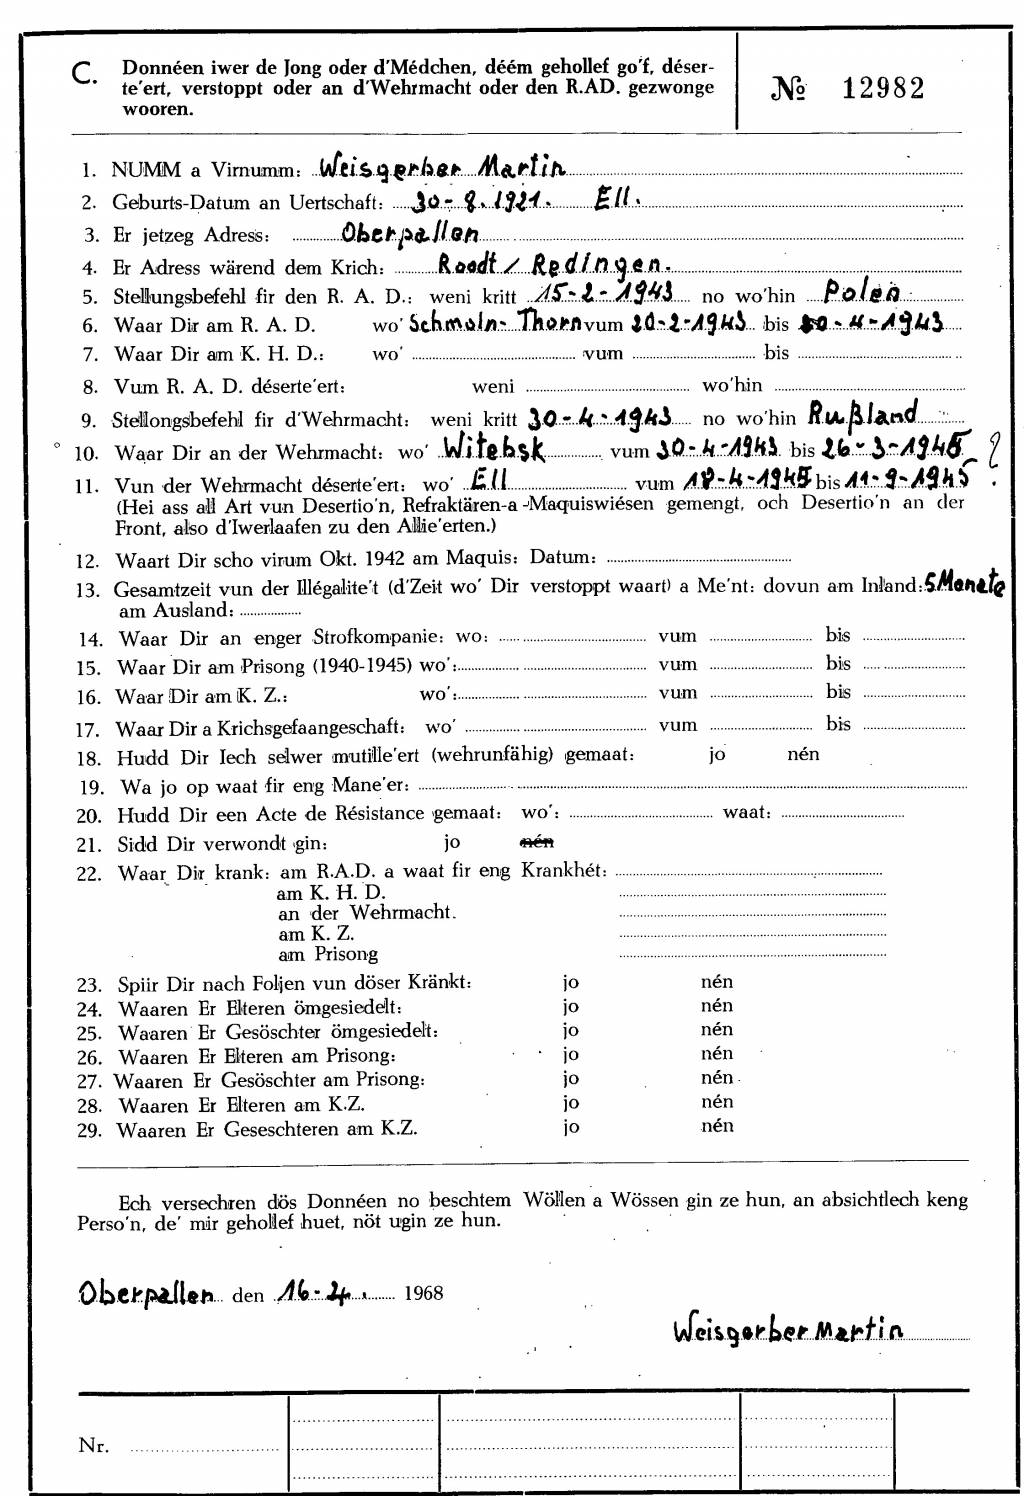 C. Donnéen iwer de Jong oder d'Médchen, déém gehollef go'f, déser-
te'ert, verstoppt oder an d'Wehrmacht oder den R.AD. gezwonge
wooren.
№ 12982
1. NUMM a Virnumm: Weisgerber Martin
2. Geburts-Datum an Uertschaft: 30-8.1921. Ell.
3. Er jetzeg Adress: Oberpallen
4. Er Adress wärend dem Krich: Roodt / Redingen.
5. Stellungsbefehl fir den R. A. D.: weni kritt 15-2-1943 no wo'hin Polen
6. Waar Dir am R. A. D. wo' Schmoln-Thorn vum 20-2-1943 bis 20-4-1943
7. Waar Dir am K. H. D.: wo' vum bis
8. Vum R. A. D. déserte'ert: weni wo'hin
9. Stellongsbefehl fir d'Wehrmacht: weni kritt 30-4-1943 no wo'hin Rußland
10. Waar Dir an der Wehrmacht: wo' Witebsk vum 30-4-1943 bis 26-3-1945 ?
11. Vun der Wehrmacht déserte'ert: wo' Ell vum 18-4-1945 bis 11-9-1945
(Hei ass all Art vun Desertio'n, Refraktären-a -Maquiswiésen gemengt, och Desertio'n an der
Front, also d'Iwerlaafen zu den Allie'erten.)
12. Waart Dir scho virum Okt. 1942 am Maquis: Datum:
13. Gesamtzeit vun der Illégalite't (d'Zeit wo' Dir verstoppt waart) a Me'nt: dovun am Inland: 5 Monate
am Ausland:
14. Waar Dir an enger Strofkompanie: wo: vum bis
15. Waar Dir am Prisong (1940-1945) wo': vum bis
16. Waar Dir am K. Z.: wo': vum bis
17. Waar Dir a Krichsgefaangeschaft: wo' vum bis
18. Hudd Dir Iech selwer mutille'ert (wehrunfähig) gemaat: jo nén
19. Wa jo op waat fir eng Mane'er:
20. Hudd Dir een Acte de Résistance gemaat: wo': waat:
21. Sidd Dir verwondt gin: jo nén
22. Waar Dir krank: am R.A.D. a waat fir eng Krankhét:
am K. H. D.
an der Wehrmacht.
am K. Z.
am Prisong
23. Spiir Dir nach Foljen vun döser Kränkt: jo nén
24. Waaren Er Elteren ömgesiedelt: jo nén
25. Waaren Er Gesöschter ömgesiedelt: jo nén
26. Waaren Er Elteren am Prisong: jo nén
27. Waaren Er Gesöschter am Prisong: jo nén
28. Waaren Er Elteren am K.Z. jo nén
29. Waaren Er Geseschteren am K.Z. jo nén
Ech versechren dös Donnéen no beschtem Wöllen a Wössen gin ze hun, an absichtlech keng
Perso'n, de' mir gehollef huet, nöt ugin ze hun.
Oberpallen den 16-4. 1968
Weisgerber Martin
Nr.